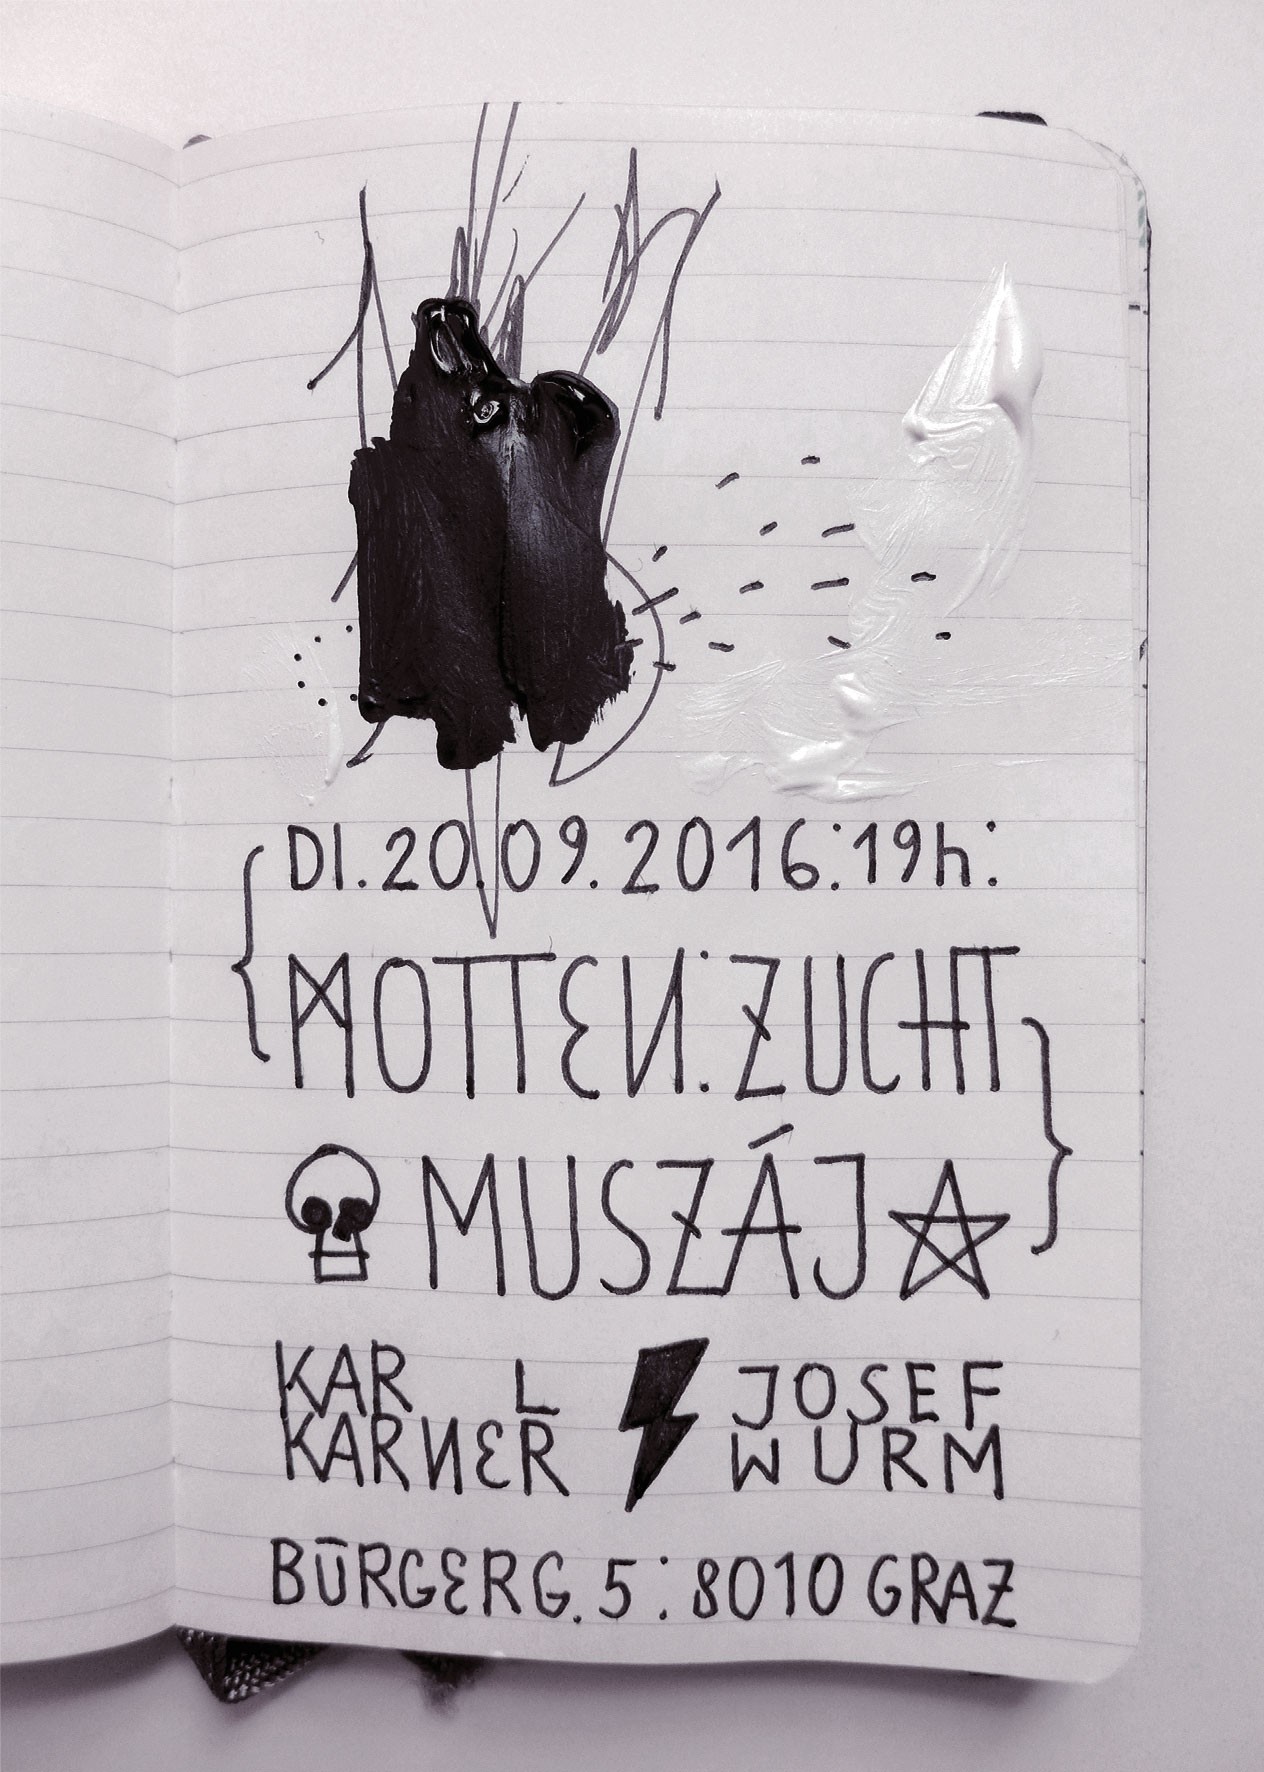 DI. 20.09.2016:19h:
MOTTEN:ZUCHT
MUSZÁJ
KARL KARNER
JOSEF WURM
BŪRGERG. 5: 8010 GRAZ